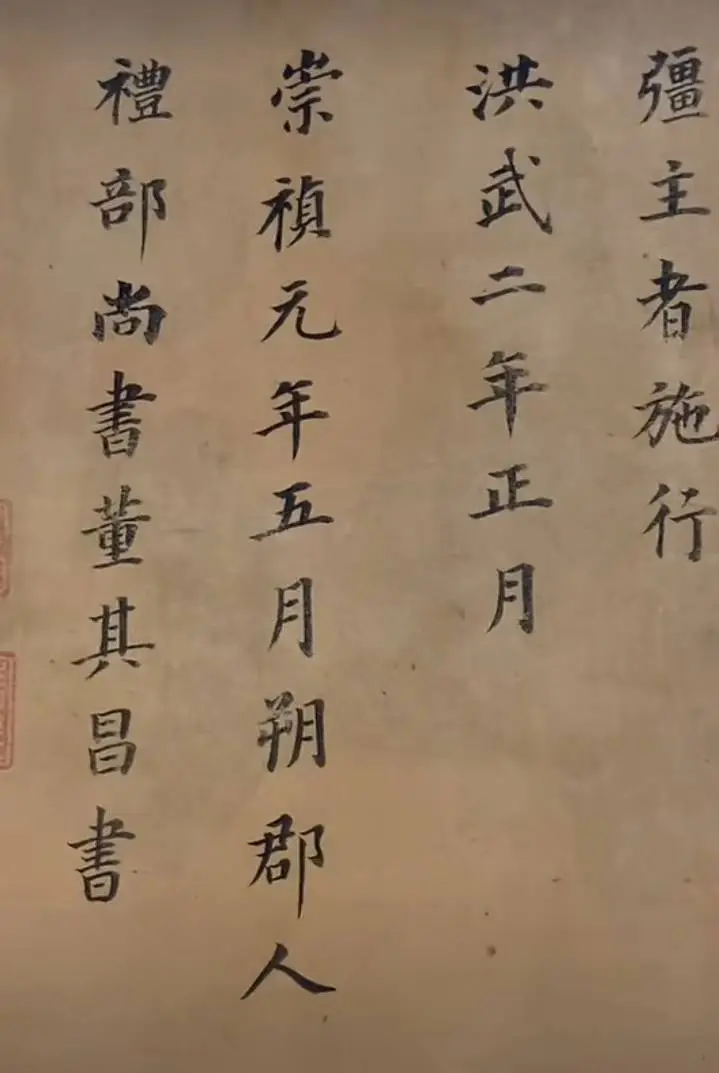 彊主者施行
洪武二年正月
崇禎元年五月朔郡人
禮部尚書董其昌書